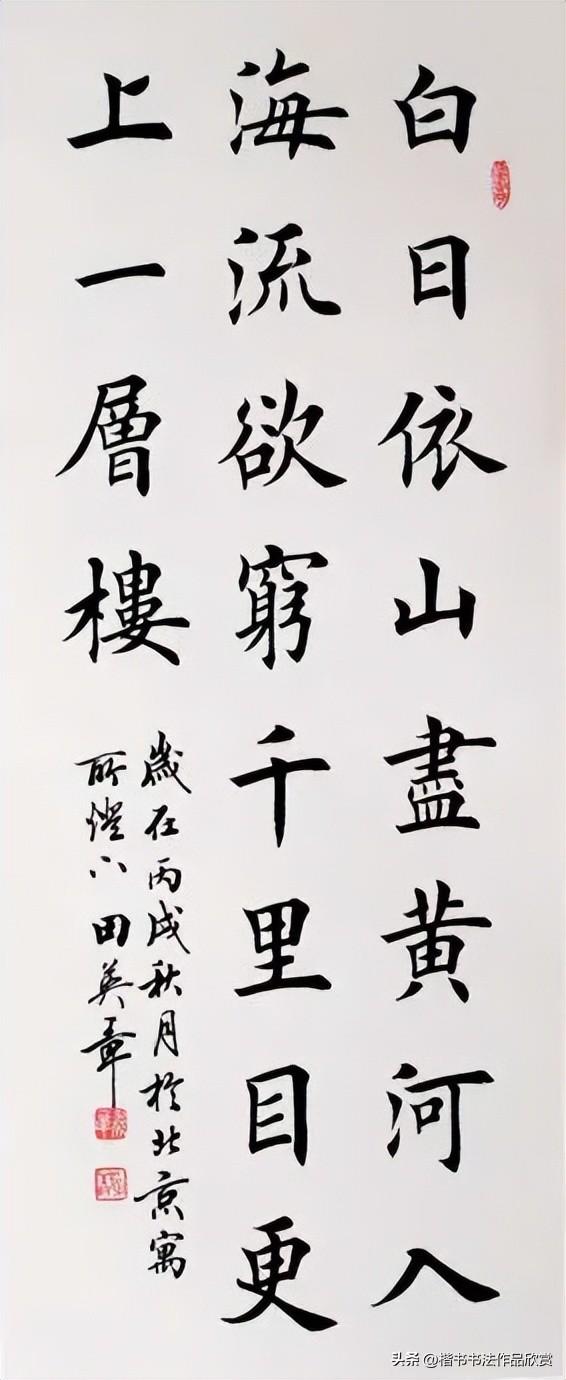 白日依山盡黄河入
海流欲窮千里目更
上一層樓
歲在丙戌秋月於北京寓
所燈下田英章
头条 @楷书书法作品欣赏